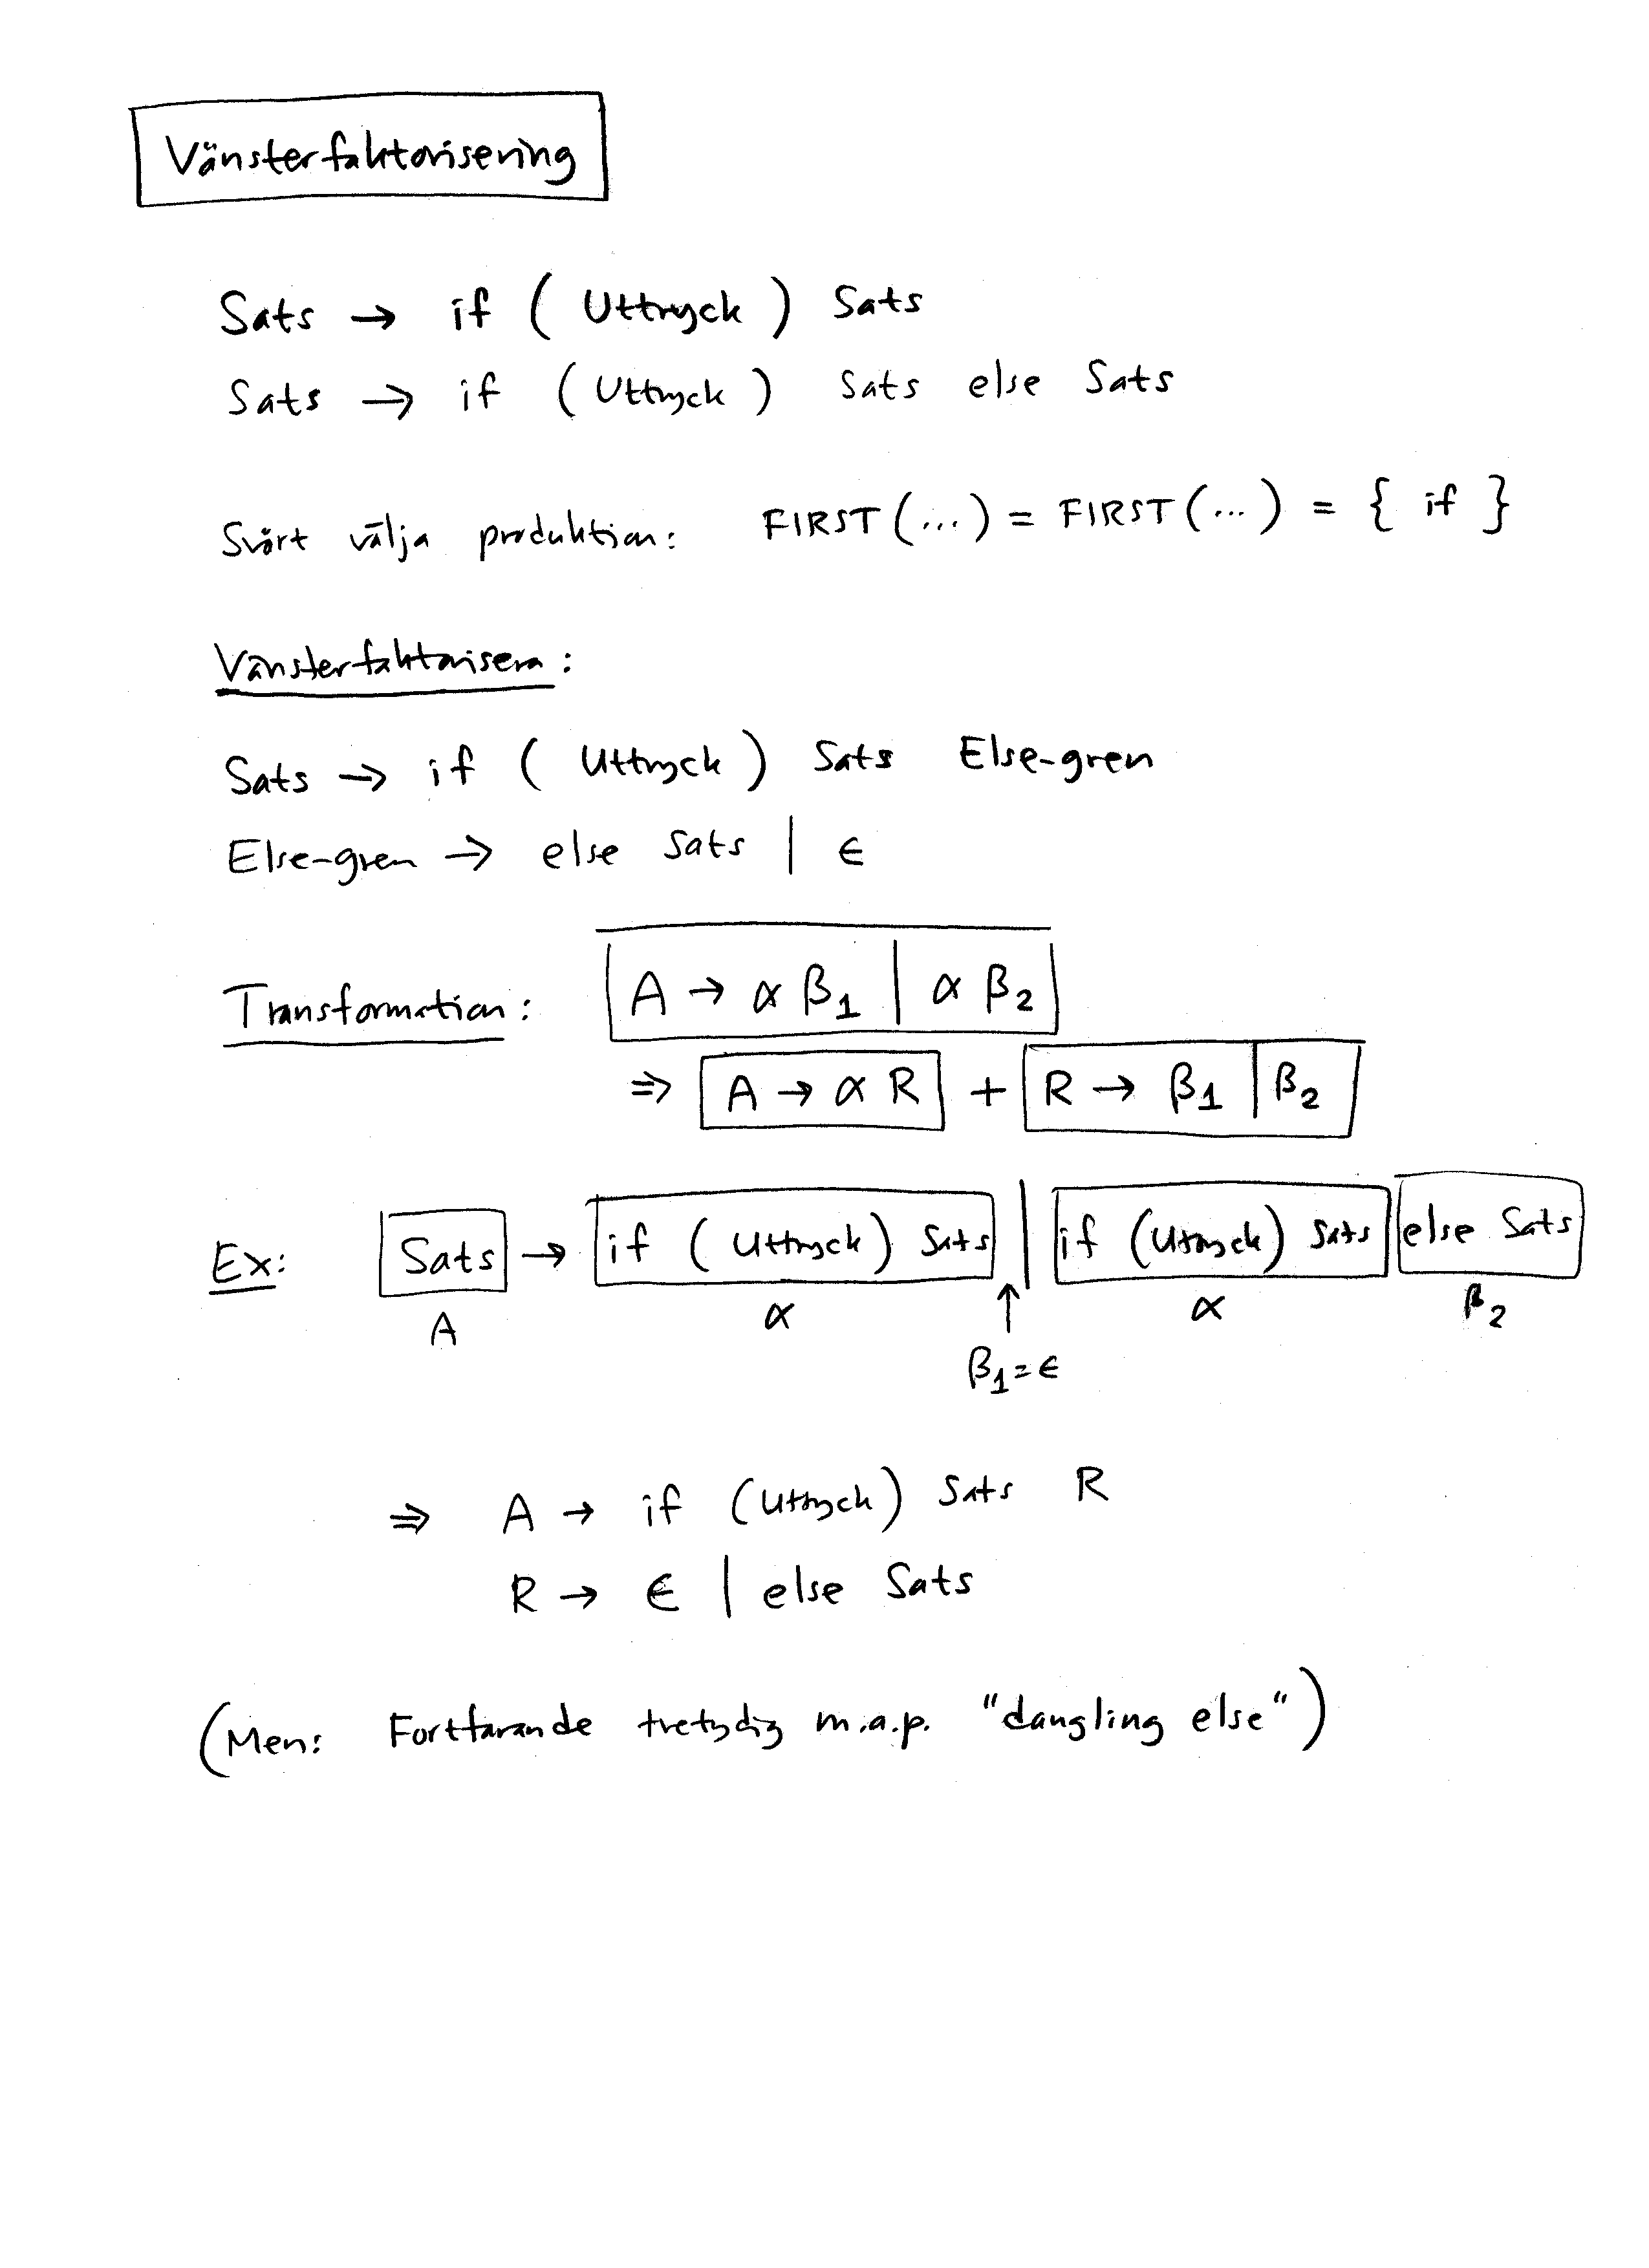 Vänsterfaktorisering
Sats → if ( Uttryck ) Sats
Sats → if ( Uttryck ) Sats else Sats
Svårt välja produktion: FIRST (...) = FIRST (...) = { if }
Vänsterfaktorisera:
Sats → if ( Uttryck ) Sats Else-gren
Else-gren → else Sats | ϵ
Transformation: A → α β1 | α β2
⇒ A → α R + R → β1 | β2
Ex: Sats → if ( Uttryck ) Sats | if (Uttryck) Sats else Sats
A α α β2
↑
β1 = ϵ
⇒ A → if (Uttryck) Sats R
R → ϵ | else Sats
(Men: Fortfarande tvetydig m.a.p. "dangling else")